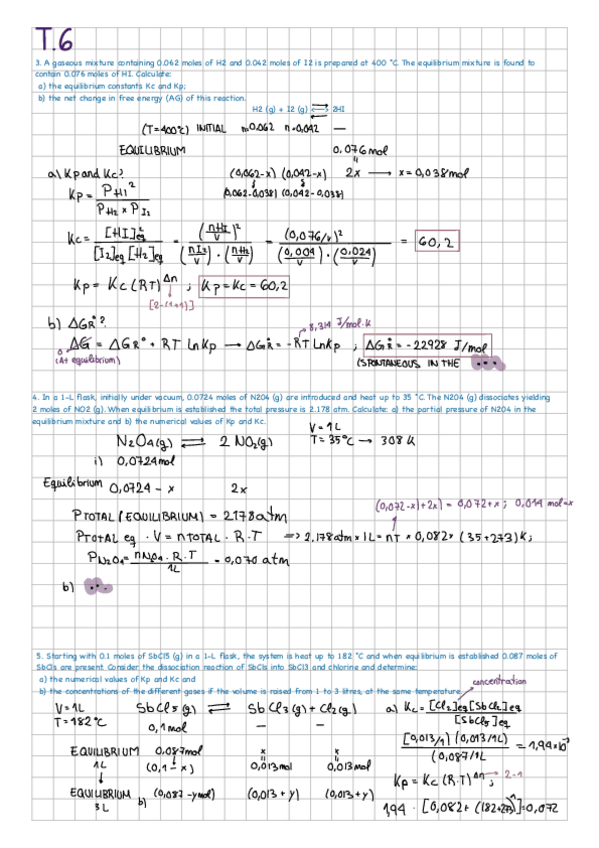 T.6
3. A gaseous mixture containing 0.062 moles of H2 and 0.042 moles of I2 is prepared at 400 °C. The equilibrium mixture is found to
contain 0.076 moles of HI. Calculate:
a) the equilibrium constants Kc and Kp;
b) the net change in free energy (AG) of this reaction.
H2 (g) + I2 (g) ⇌ 2HI
(T=400°C) INITIAL n=0.062 n=0,042 —
EQUILIBRIUM 0,076mol
a) Kp and Kc? (0,062-x) (0,042-x) 2x → x=0,038mol
(0,062-0,038) (0,042-0,038)
Kp = P HI² / P H2 x P I2
Kc = [HI]²eq / [I2]eq [H2]eq = (nHI/V)² / (nI2/V)·(nH2/V) = (0,076/V)² / (0,004/V)·(0,024/V) = 60,2
Kp = Kc (RT)^Δn ; Kp = Kc = 60,2
[2-(1+1)]
b) ΔGR°? 8,314 J/mol·K
0 ΔG = ΔGR° + RT LnKp → ΔGR° = -RT LnKp ; ΔGR° = -22928 J/mol
(At equilibrium) (SPONTANEOUS IN THE ...
4. In a 1-L flask, initially under vacuum, 0.0724 moles of N2O4 (g) are introduced and heat up to 35 °C. The N2O4 (g) dissociates yielding
2 moles of NO2 (g). When equilibrium is established the total pressure is 2.178 atm. Calculate: a) the partial pressure of N2O4 in the
equilibrium mixture and b) the numerical values of Kp and Kc.
V=1L
N2O4(g) ⇌ 2 NO2(g) T=35°C → 308 K
i) 0,0724mol
Equilibrium 0,0724 - x 2x
(0,072-x)+2x) = 0,072+x ; 0,014 mol=x
P TOTAL (EQUILIBRIUM) = 2.178 atm
P TOTAL eq · V = n TOTAL · R · T => 2.178 atm x 1L = nT x 0,082 x (35+273) K;
P N2O4 = nN2O4 · R · T / 1L = 0,070 atm
b) ...
5. Starting with 0.1 moles of SbCl5 (g) in a 1-L flask, the system is heat up to 182 °C and when equilibrium is established 0.087 moles of
SbCl5 are present. Consider the dissociation reaction of SbCl5 into SbCl3 and chlorine and determine:
a) the numerical values of Kp and Kc and
b) the concentrations of the different gases if the volume is raised from 1 to 3 litres, at the same temperature.
concentration
V=1L SbCl5 (g) ⇌ SbCl3 (g) + Cl2 (g) a) Kc = [Cl2]eq [SbCl3] eq / [SbCl5] eq
T=182°C 0,1mol — —
[0,013/1) (0,013/1L) / (0,087/1L = 1,94x10⁻³
EQUILIBRIUM 0,087mol x x
1L (0,1-x) 0,013mol 0,013mol
Kp = Kc (R·T)^Δn → 2-1 ;
EQUILIBRIUM b) (0,087-y mol) (0,013+y) (0,013+y)
3L 1,94 · [0,082 + (182+273)]=0,072